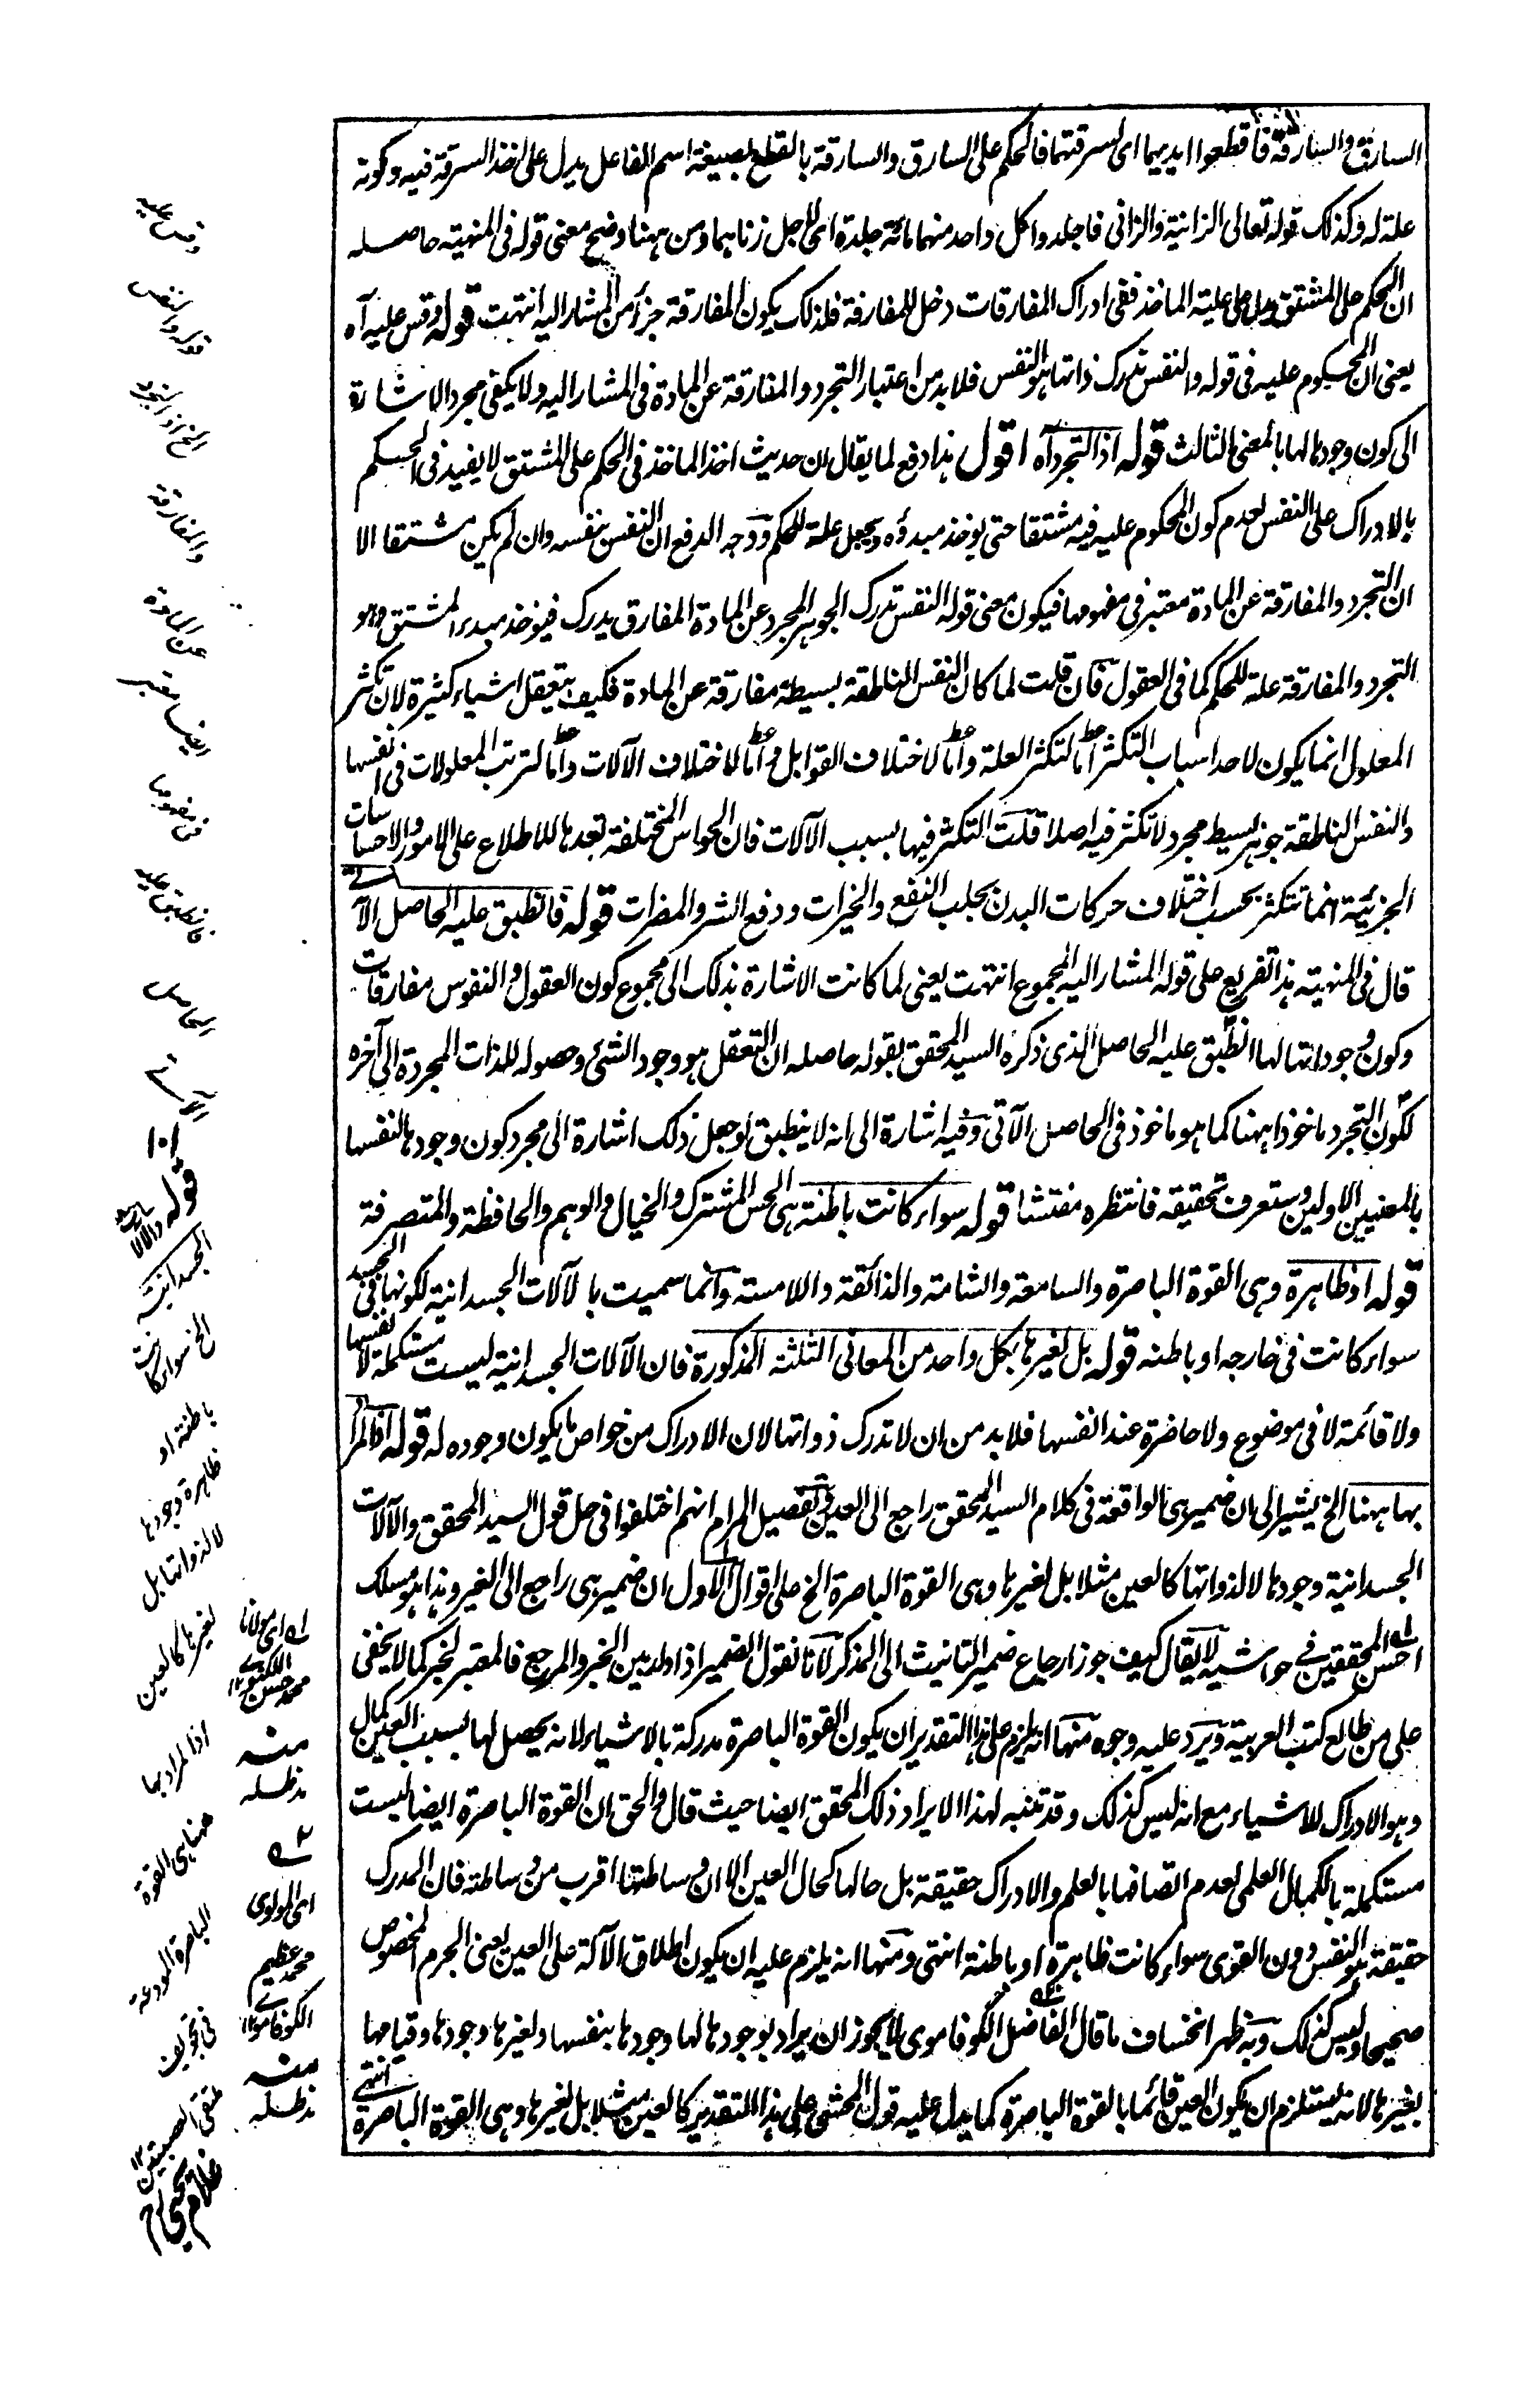 السارق والسارقة فاقطعوا ايديهما اى لسرقتهما فالحكم على السارق والسارقة بالقطع بصيغة اسم الفاعل يدل على اخذ السرقة فيه وكونه
علة له وكذلك قوله تعالى الزانية والزانى فاجلدوا كل واحد منهما مائة جلدة اى لاجل زناهما ومن ههنا وضح معنى قوله فى المنهيته حاصله
ان الحكم على المشتق يدل على علية الماخذ ففى ادراك المفارقات دخل للمفارقة فلذلك يكون المفارقة جزأ من المشار اليه انتهت قوله وقس عليه آه
يعنى ان المحكوم عليه فى قوله والنفس تدرك ذاتها هو النفس فلا بد من اعتبار التجرد والمفارقة عن المادة فى المشار اليه ولا يكفى مجرد الاشارة
الى كون وجودها لها بالمعنى الثالث قوله اذ التجرد آه اقول هذا دفع لما يقال ان حديث اخذ الماخذ فى الحكم على المشتق لا يفيد فى الحكم
بالادراك على النفس لعدم كون المحكوم عليه فيه مشتقا حتى يوخذ مبدؤه ويجعل علة للحكم ووجه الدفع ان النفس بنفسه وان لم يكن مشتقا الا
ان التجرد والمفارقة عن المادة معتبر فى مفهومها فيكون معنى قوله النفس تدرك الجوهر المجرد عن المادة المفارق يدرك فيوخذ مبدء المشتق وهو
التجرد والمفارقة علة للحكم كما فى العقول فان قلت لما كان النفس الناطقة بسيطة مفارقة عن المادة فكيف يتعقل اشياء كثيرة لان تكثر
المعلول انما يكون لاحد اسباب التكثر اما لتكثر العلة واما لاختلاف القوابل واما لاختلاف الآلات واما لترتب المعلولات فى انفسها
والنفس الناطقة جوهر بسيط مجرد لا تكثر فيه اصلا قلت التكثر فيها بسبب الآلات فان الحواس المختلفة تعدها للاطلاع على الامور والاحساسات
الجزئية انما تتكثر بحسب اختلاف حركات البدن بجلب النفع والخيرات ودفع الشر والمضرات قوله فانطبق عليه الحاصل الآتى
قال فى المنهيته هذا تفريع على قوله المشار اليه المجموع انتهت يعنى لما كانت الاشارة بذلك الى مجموع كون العقول والنفوس مفارقات
وكون وجوداتها لها انطبق عليه الحاصل الذى ذكره السيد المحقق بقوله حاصله ان التعقل هو وجود الشئ وحصوله للذات المجردة الى آخره
لكون التجرد ماخوذا ههنا كما هو ماخوذ فى الحاصل الآتى وفيه اشارة الى انه لا ينطبق لو جعل ذلك اشارة الى مجرد كون وجودها لنفسها
بالمعنيين الاولين وستعرف تحقيقه فانتظره مفتشا قوله سواء كانت باطنة هى الحس المشترك والخيال والوهم والحافظة والمتصرفة
قوله او ظاهرة وهى القوة الباصرة والسامعة والشامة والذائقة واللامسة وانما سميت بالآلات الجسدانية لكونها فى الجسد
سواء كانت فى خارجه او باطنه قوله بل لغيرها بكل واحد من المعانى الثلثة المذكورة فان الآلات الجسدانية ليست مستكملة لانفسها
ولا قائمة لا فى موضوع ولا حاضرة عند انفسها فلا بد من ان لا تدرك ذواتها لان الادراك من خواص ما يكون وجوده له قوله اذ المراد
بها ههنا الخ يشير الى ان ضمير هى الواقعة فى كلام السيد المحقق راجع الى العين وتفصيل المرام انهم اختلفوا فى حل قول السيد المحقق والآلات
الجسدانية وجودها لا لذواتها كالعين مثلا بل لغيرها وهى القوة الباصرة الخ على اقوال الاول ان ضمير هى راجع الى الغير وهذا هو مسلك
احسن المحققين فى حواشيه لا يقال كيف جوز ارجاع ضمير التانيث الى المذكر لانا نقول الضمير اذا دار بين الخبر والمرجع فالمعتبر الخبر كما لا يخفى
على من طالع كتب العربية ويرد عليه وجوه منها انه يلزم على هذا التقدير ان يكون القوة الباصرة مدركة بالاشياء لانه يحصل لها بسبب العين كمال
وهو الادراك للاشياء مع انه ليس كذلك وقد تنبه لهذا الايراد ذلك المحقق ايضا حيث قال والحق ان القوة الباصرة ايضا ليست
مستكملة بالكمال العلمى لعدم اتصافها بالعلم والادراك حقيقة بل حالها كحال العين الا ان وساطتها اقرب من وساطته فان المدرك
حقيقة هو النفس دون القوى سواء كانت ظاهرة او باطنة انتهى ومنها انه يلزم عليه ان يكون اطلاق الآلة على العين يعنى الجرم المخصوص
صحيحا وليس كذلك وبه ظهر انخساف ما قال الفاضل الگوفاموى يجوز ان يراد بوجودها لها وجودها بنفسها ولغيرها وجودها وقيامها
بغيرها لانه يستلزم ان يكون العين قائما بالقوة الباصرة كما يدل عليه قول المحشى على هذا التقدير كالعين مثلا بل لغيرها وهى القوة الباصرة انتهى
وقس عليه
قوله والنفس
الخ اذ التجرد
والمفارقة
عن المادة
ايضا معتبر
فى مفهومها
فانطبق عليه
الحاصل
الآتى
١٠١
قوله والآلات
الجسدانية
الخ سواء كانت
باطنة او
ظاهرة وجودها
لا لذواتها بل
لغيرها كالعين
اذ المراد بها
ههنا هى القوة
الباصرة المودعة
فى تجويف
ملتقى العصبتين ١٢
غلام يحيى
له اى مولانا
محمد حسن اللكنوى ١٢
منه
مدظله
٢ه
اى المولوى
محمد عظيم
الگوفاموى ١٢
منه
مدظله